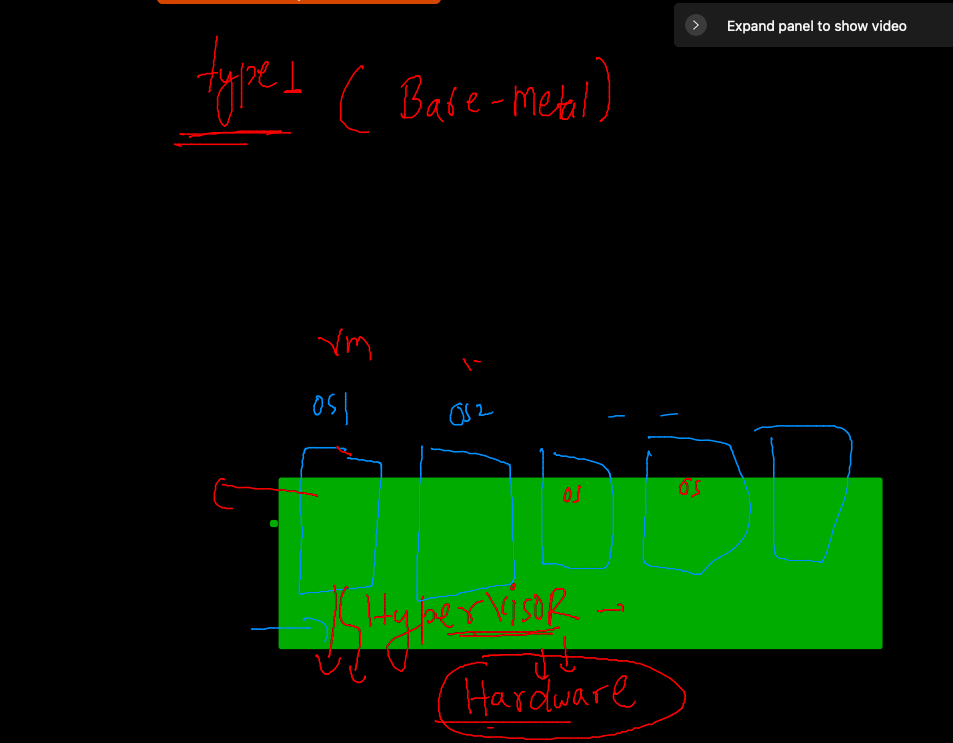 Expand panel to show video
type 1 (Bare-metal)
Vm
OS1 OS2 — —
OS OS
HyperVisoR →
Hardware